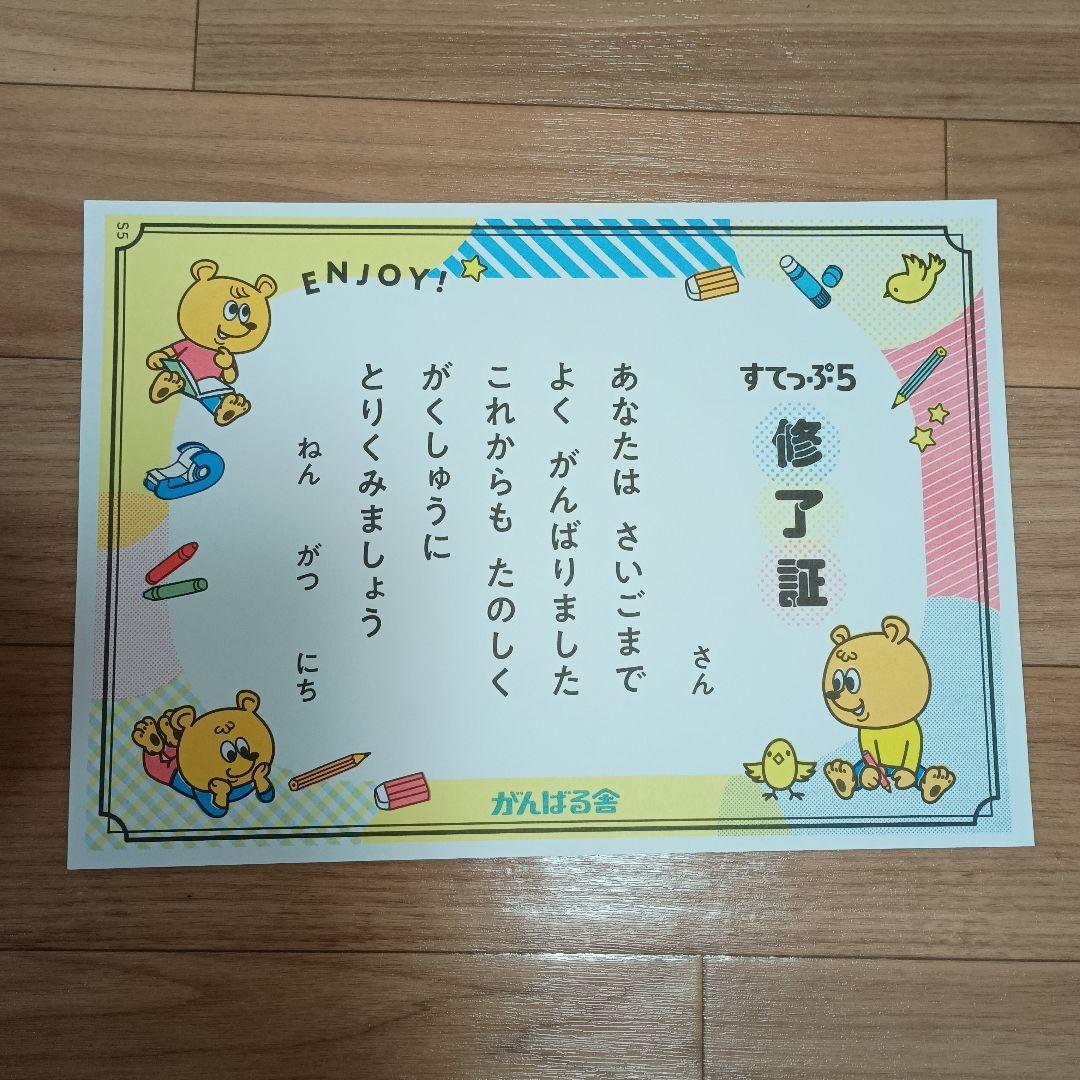 S5
ENJOY!
すてっぷ5
修了証
さん
あなたは さいごまで
よく がんばりました
これからも たのしく
がくしゅうに
とりくみましょう
ねん がつ にち
がんばる舎